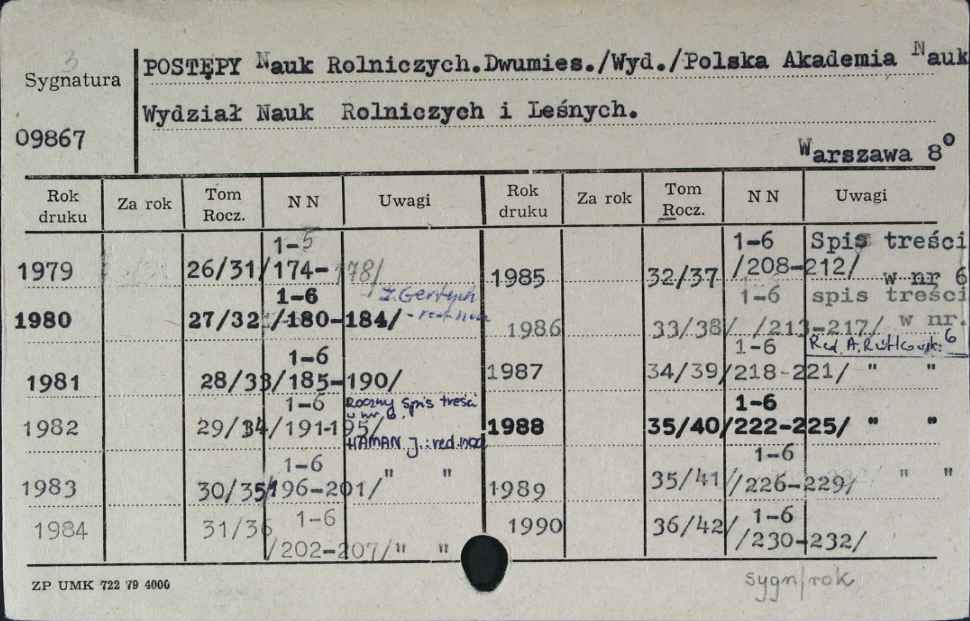 3
Sygnatura
09867
POSTĘPY Nauk Rolniczych.Dwumies./Wyd./Polska Akademia Nauk
Wydział Nauk Rolniczych i Leśnych.
Warszawa 8°
Rok druku Za rok Tom Rocz. NN Uwagi Rok druku Za rok Tom Rocz. NN Uwagi
1979 26/31/ 1-5 /174-178/
1980 27/32 1-6 /180-184/ J. Gertych - red. nacz.
1981 28/33 1-6 /185-190/
1982 29/34 1-6 /191-195/ Roczny spis treści w nr 6. HAMAN J.: red. nacz.
1983 30/35 1-6 /196-201/ " "
1984 31/36 1-6 /202-207/ " "
1985 32/37 1-6 /208-212/ Spis treści w nr 6
1986 33/38/ 1-6 /213-217/ spis treści w nr. 6
Red. A. Rutkowski
1987 34/39 1-6 /218-221/ " "
1988 35/40 1-6 /222-225/ " "
1989 35/41/ 1-6 /226-229/ " "
1990 36/42/ 1-6 /230-232/
ZP UMK 722 79 4000
sygn/rok